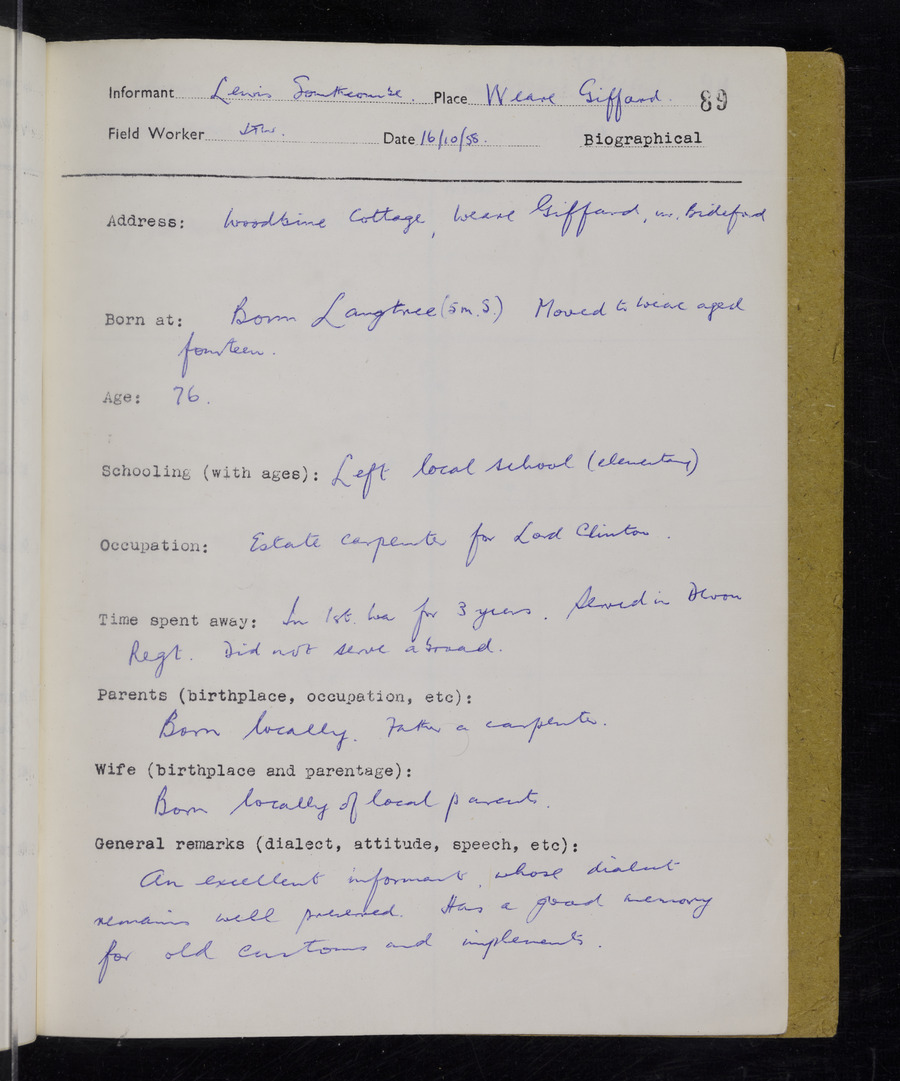 Informant Lewis Southcombe. Place Weare Giffard. 89
Field Worker Date 16/10/58. Biographical
Address: Woodbine Cottage, Weare Giffard, nr. Bideford
Born at: Born Langtree (5 m. S.) Moved to Weare aged
fourteen.
Age: 76.
Schooling (with ages): Left local school (elementary)
Occupation: Estate carpenter for Lord Clinton.
Time spent away: In 1st. War for 3 years. Served in Devon
Regt. Did not serve abroad.
Parents (birthplace, occupation, etc):
Born locally. Father a carpenter.
Wife (birthplace and parentage):
Born locally of local parents.
General remarks (dialect, attitude, speech, etc):
An excellent informant, whose dialect
remains well preserved. Has a good memory
for old customs and implements.